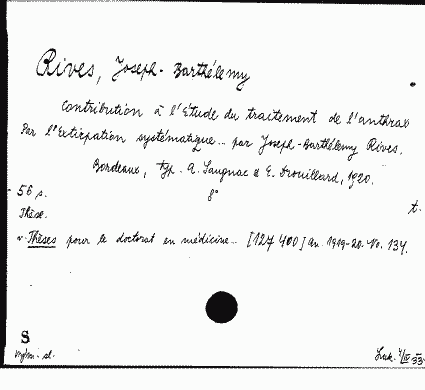 Rives, Joseph-Barthélemy
Contribution à l'Étude du traitement de l'anthrax
Par l'Extirpation systématique... par Joseph-Barthélemy Rives.
Bordeaux, typ. A. Saugnac & E. Drouillard, 1920.
56 s. 8°
t.
Thèse.
v. Thèses pour le doctorat en médicine... [127 400] An. 1919-20. No. 134.
S